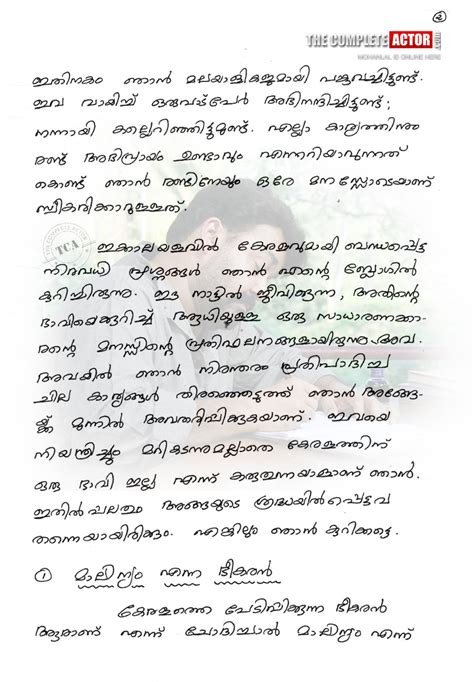 2
THE COMPLETE ACTOR .COM
MOHANLAL IS ONLINE HERE
ഇതിനകം ഞാൻ മലയാളികളുമായി പങ്കുവച്ചിട്ടുണ്ട്.
ഇവ വായിച്ച് ഒരുപാട്പേർ അഭിനന്ദിച്ചിട്ടുണ്ട്;
നന്നായി കല്ലെറിഞ്ഞിട്ടുമുണ്ട്. എല്ലാ കാര്യത്തിനും
രണ്ട് അഭിപ്രായം ഉണ്ടാവും എന്നറിയാവുന്നത്
കൊണ്ട് ഞാൻ രണ്ടിനേയും ഒരേ മനസ്സോടെയാണ്
സ്വീകരിക്കാറുള്ളത്.
THE COMPLETE ACTOR
TCA
ഇക്കാലയളവിൽ കേരളവുമായി ബന്ധപ്പെട്ട
നിരവധി പ്രശ്നങ്ങൾ ഞാൻ എന്റെ ബ്ലോഗിൽ
കുറിച്ചിരുന്നു. ഈ നാട്ടിൽ ജീവിക്കുന്ന, അതിന്റെ
ഭാവിയെക്കുറിച്ച് ആധിയുള്ള ഒരു സാധാരണക്കാ-
രന്റെ മനസ്സിന്റെ പ്രതിഫലനങ്ങളായിരുന്നു അവ.
അവയിൽ ഞാൻ നിരന്തരം പ്രതിപാദിച്ച
ചില കാര്യങ്ങൾ തിരഞ്ഞെടുത്ത് ഞാൻ അങ്ങേ-
യ്ക്ക് മുന്നിൽ അവതരിപ്പിക്കുകയാണ്. ഇവയെ
നിയന്ത്രിച്ചും മറികടന്നുമല്ലാതെ കേരളത്തിന്
ഒരു ഭാവി ഇല്ല എന്ന് കരുതുന്നയാളാണ് ഞാൻ.
ഇതിൽ പലതും അങ്ങയുടെ ശ്രദ്ധയിൽപ്പെട്ടവ
തന്നെയായിരിക്കും. എങ്കിലും ഞാൻ കുറിക്കട്ടെ.
1 മാലിന്യം എന്ന ഭീകരൻ
കേരളത്തെ പേടിപ്പിക്കുന്ന ഭീകരൻ
ആരാണ് എന്ന് ചോദിച്ചാൽ മാലിന്യം എന്ന്